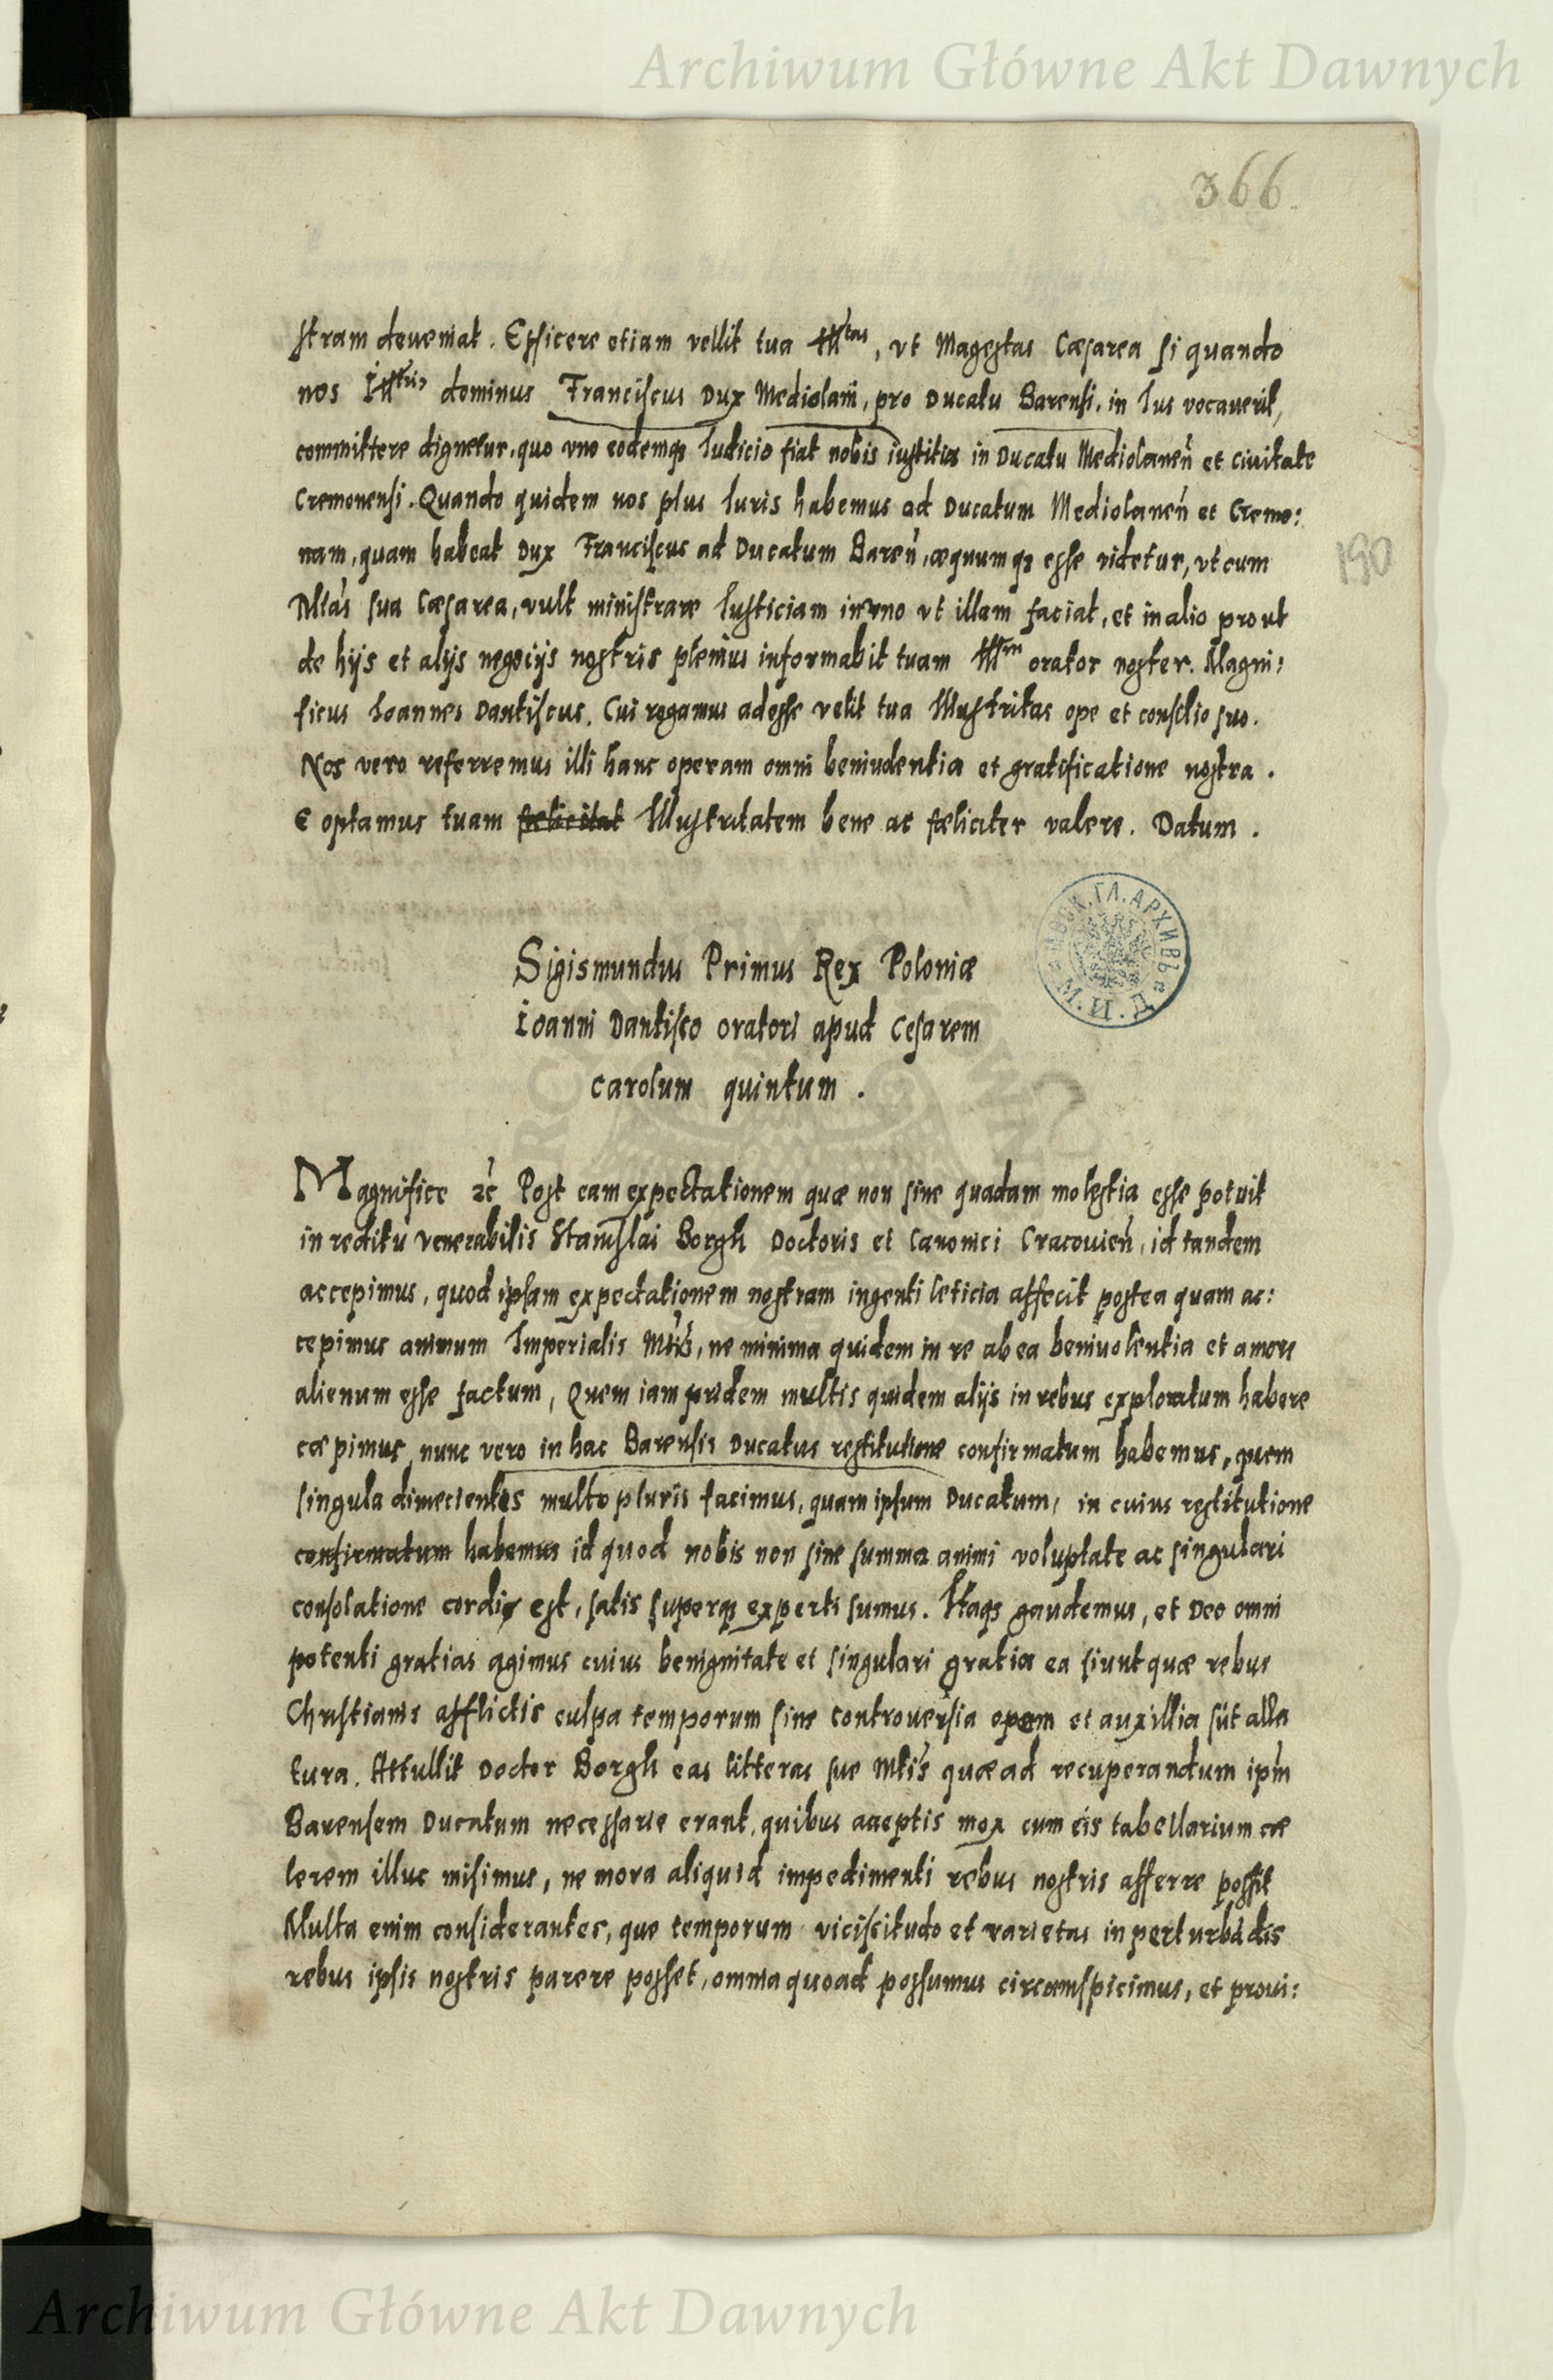 Archiwum Główne Akt Dawnych
366
stram deueniat. Efficere etiam vellit tua Ill^tas, vt Magestas Cæsarea si quando
nos Ill^tris dominus Franciscus Dux Mediolani, pro Ducatu Barensi, in Ius vocaverit,
committere dignetur, quo vno eodemq₃ Iudicio fiat nobis iustitia in Ducatu Mediolaneñ et civitate
Cremonensi. Quando quidem nos plus Iuris habemus ad Ducatum Mediolaneñ et Cremo:
nam, quam habeat Dux Franciscus ad Ducatum Bareñ, æquumq₃ esse videtur, vt cum
Mtás sua Cæsarea, vult ministrare Iusticiam in vno vt illam faciat, et in alio prout
190
de hijs et alijs negocijs nostris plenius informabit tuam Ill^m orator noster. Magni:
ficus Ioannes Dantiscus. Cui rogamus adesse velit tua Illustritas ope et consilio suo.
Nos vero referremus illi hanc operam omni beniuolentia et gratificatione nostra.
E optamus tuam felicitat Illustritatem bene ac fæliciter valere. Datum.
МОСК. ГЛ. АРХИВЪ М. И. Д.
Sigismundus Primus Rex Poloniæ
Ioanni Dantisco oratori apud Cesarem
Carolum quintum.
Magnifice &c̃ Post eam expectationem quæ non sine quadam molestia esse potuit
in reditu venerabilis Stanislai Borgh Doctoris et Canonici Cracovieñ, id tandem
accepimus, quod ipsam expectationem nostram ingenti leticia affecit postea quam ac:
cepimus animum Imperialis Mtis, ne minima quidem in re ab ea beniuolentia et amore
alienum esse factum, Quem iam pridem multis quidem alijs in rebus exploratum habere
cæpimus, nunc vero in hac Barensis Ducatus restitutione confirmatum habemus, quem
singula dimecientes multo pluris facimus, quam ipsum Ducatum, in cuius restitutione
confirmatum habemus id quod nobis non sine summa animi voluptate ac singulari
consolatione cordis est, satis superq₃ experti sumus. Itaq₃ gaudemus, et Deo omni
potenti gratias agimus cuius benignitate et singulari gratia ea siunt quæ rebus
Christianis afflictis culpa temporum sine controversia opem et auxillia sūt alla
tura. Attullit Doctor Borgh eas litteras sue Mtis quæ ad recuperandum ipm̃
Barensem Ducatum necessarie erant, quibus acceptis mox cum eis tabellarium cæ
lerem illuc misimus, ne mora aliquid impedimenti rebus nostris afferre possit
Multa enim considerantes, que temporum viciscitudo et varietas in perturbatis
rebus ipsis nostris parere posset, omnia quoad possumus circumspicimus, et proui:
Archiwum Główne Akt Dawnych